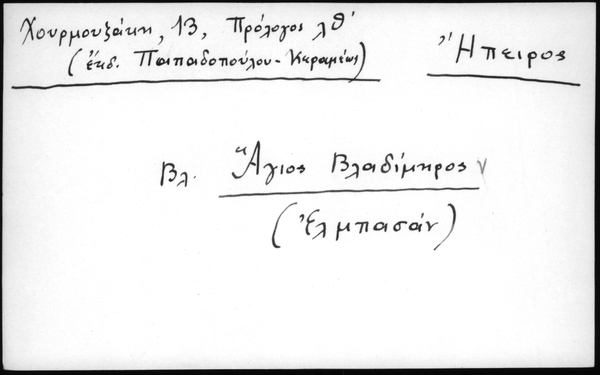 Χουρμουζάκη, 13, Πρόλογος λθ'
(ἔκδ. Παπαδοπούλου-Κεραμέως)
Ἤπειρος
Βλ. Ἅγιος Βλαδίμηρος
(Ἐλμπασάν)